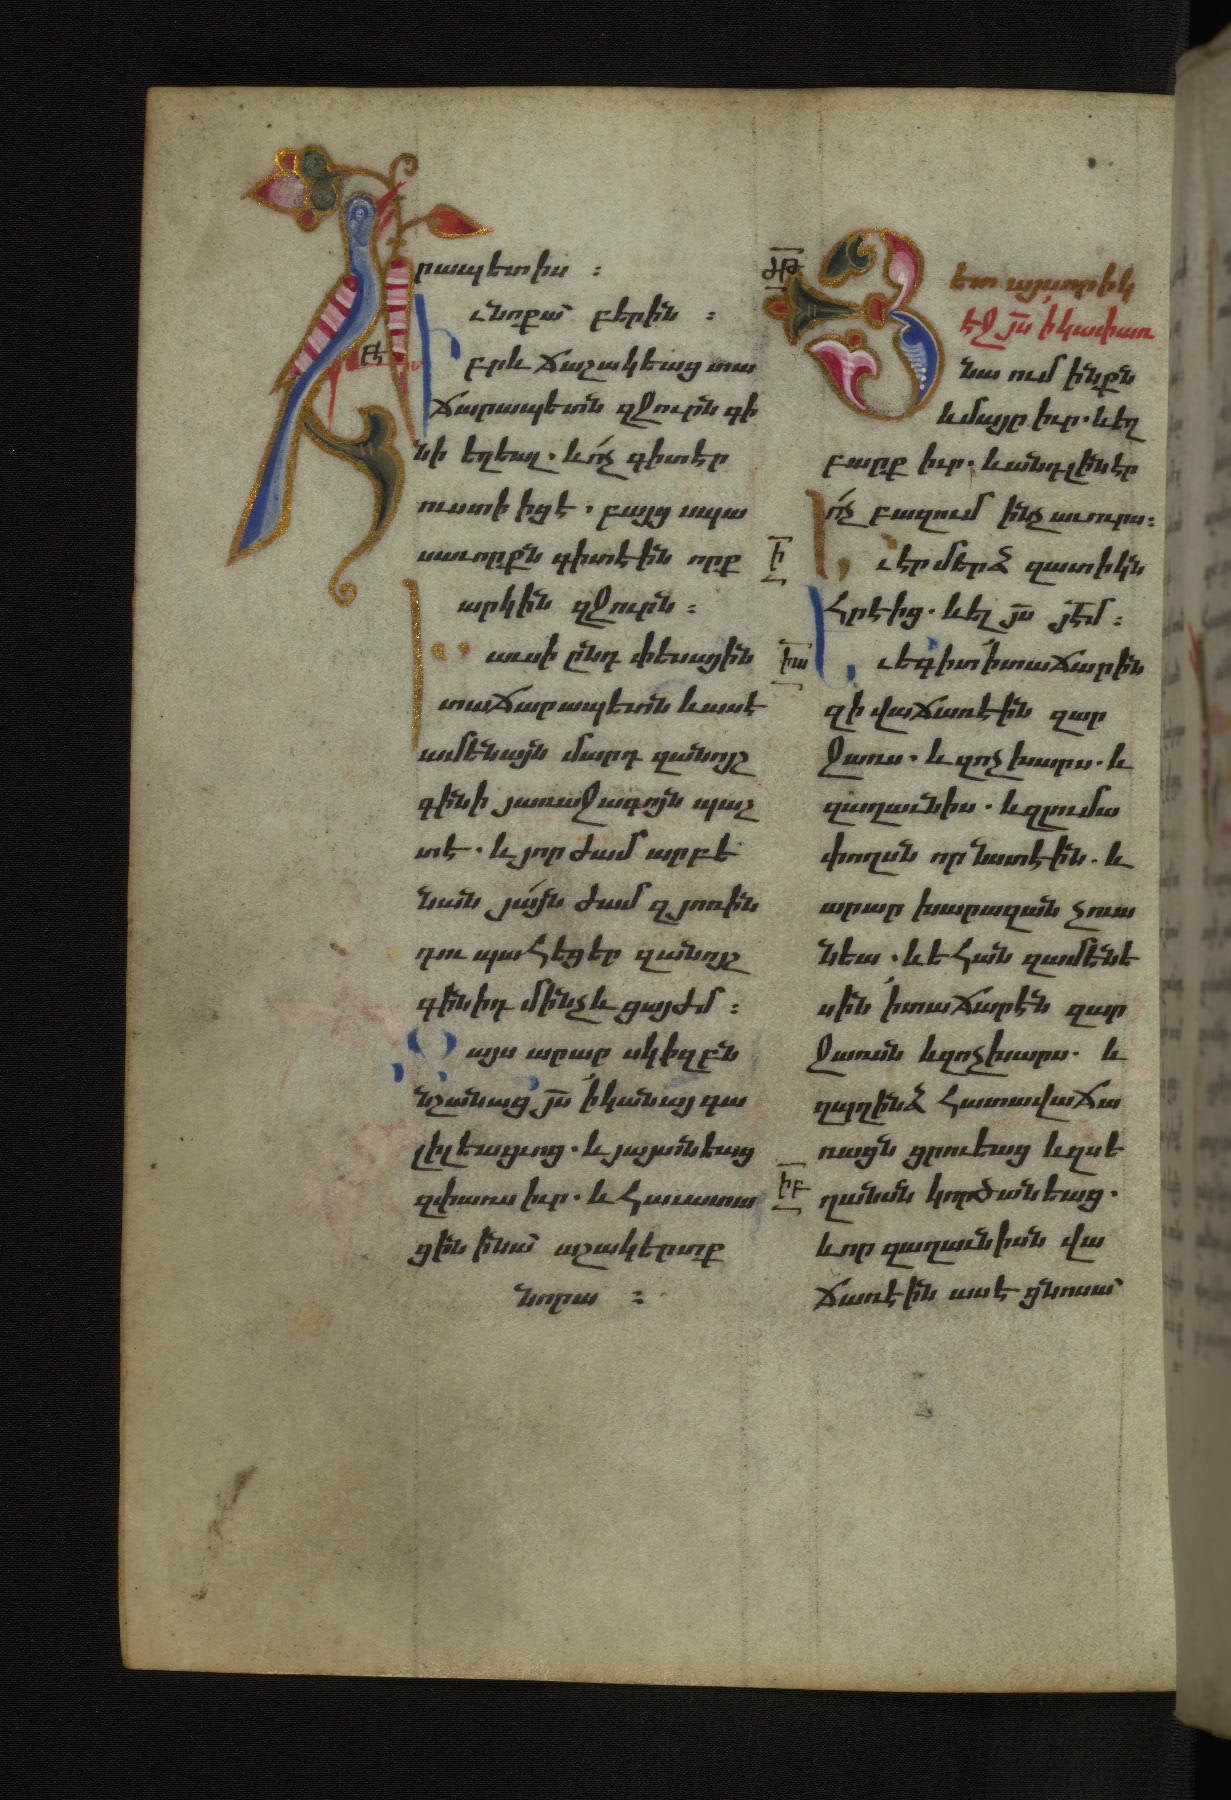 րապետիս :
Եւ նոքա՟ բերին :
Իբրև ճաշակեաց տա
ճարապետն զջուրն գի
նի եղեալ. և ո՛չ գիտէր
ուստի իցէ. բայց սպա
սաւորքն գիտէին որք
արկին զջուրն :
Խաւսի ընդ փեսային
տաճարապետն և ասէ
ամենայն մարդ զանոյշ
գինի յառաջագոյն պաշ
տէ. և յորժամ արբե
նան յա՛յն ժամ զյոռին
դու պահեցեր զանոյշ
գինիդ մինչև ցայժմ :
Զայս արար սկիզբն
նշանաց յ՟ս ի կանայ գա
լիլեացւոց. և յայտնեաց
զփառս իւր. և հաւատա
ցին ի նա՟ աշակերտք
նորա :
ԺԹ
Յետ այսորիկ
էջ յ՟ս ի կափառ
նաում ինքն
և մայր իւր. և եղ
բարք իւր. և անդ լինէր
ո՛չ բազում ինչ աւուրս :
Ի
Եւ էր մերձ զատիկն
հրէից. և ել յ՟ս յէ՟մ :
ԻԱ
Եւ եգիտ ի տաճարին
զի վաճառէին զար
ջառս. և զոչխարս. և
զաղաւնիս. և զլումա
փողսն որ նստէին. և
արար խարազան չուա
նեա. և եհան զամենե
սին ի տաճարէն զար
ջառսն և զոչխարս. և
զպղինձ հատավաճա
ռացն ցրուեաց և զսե
ԻԲ
ղանսն կործանեաց.
և որ զաղաւնիսն վա
ճառէին ասէ ցնոսա՟